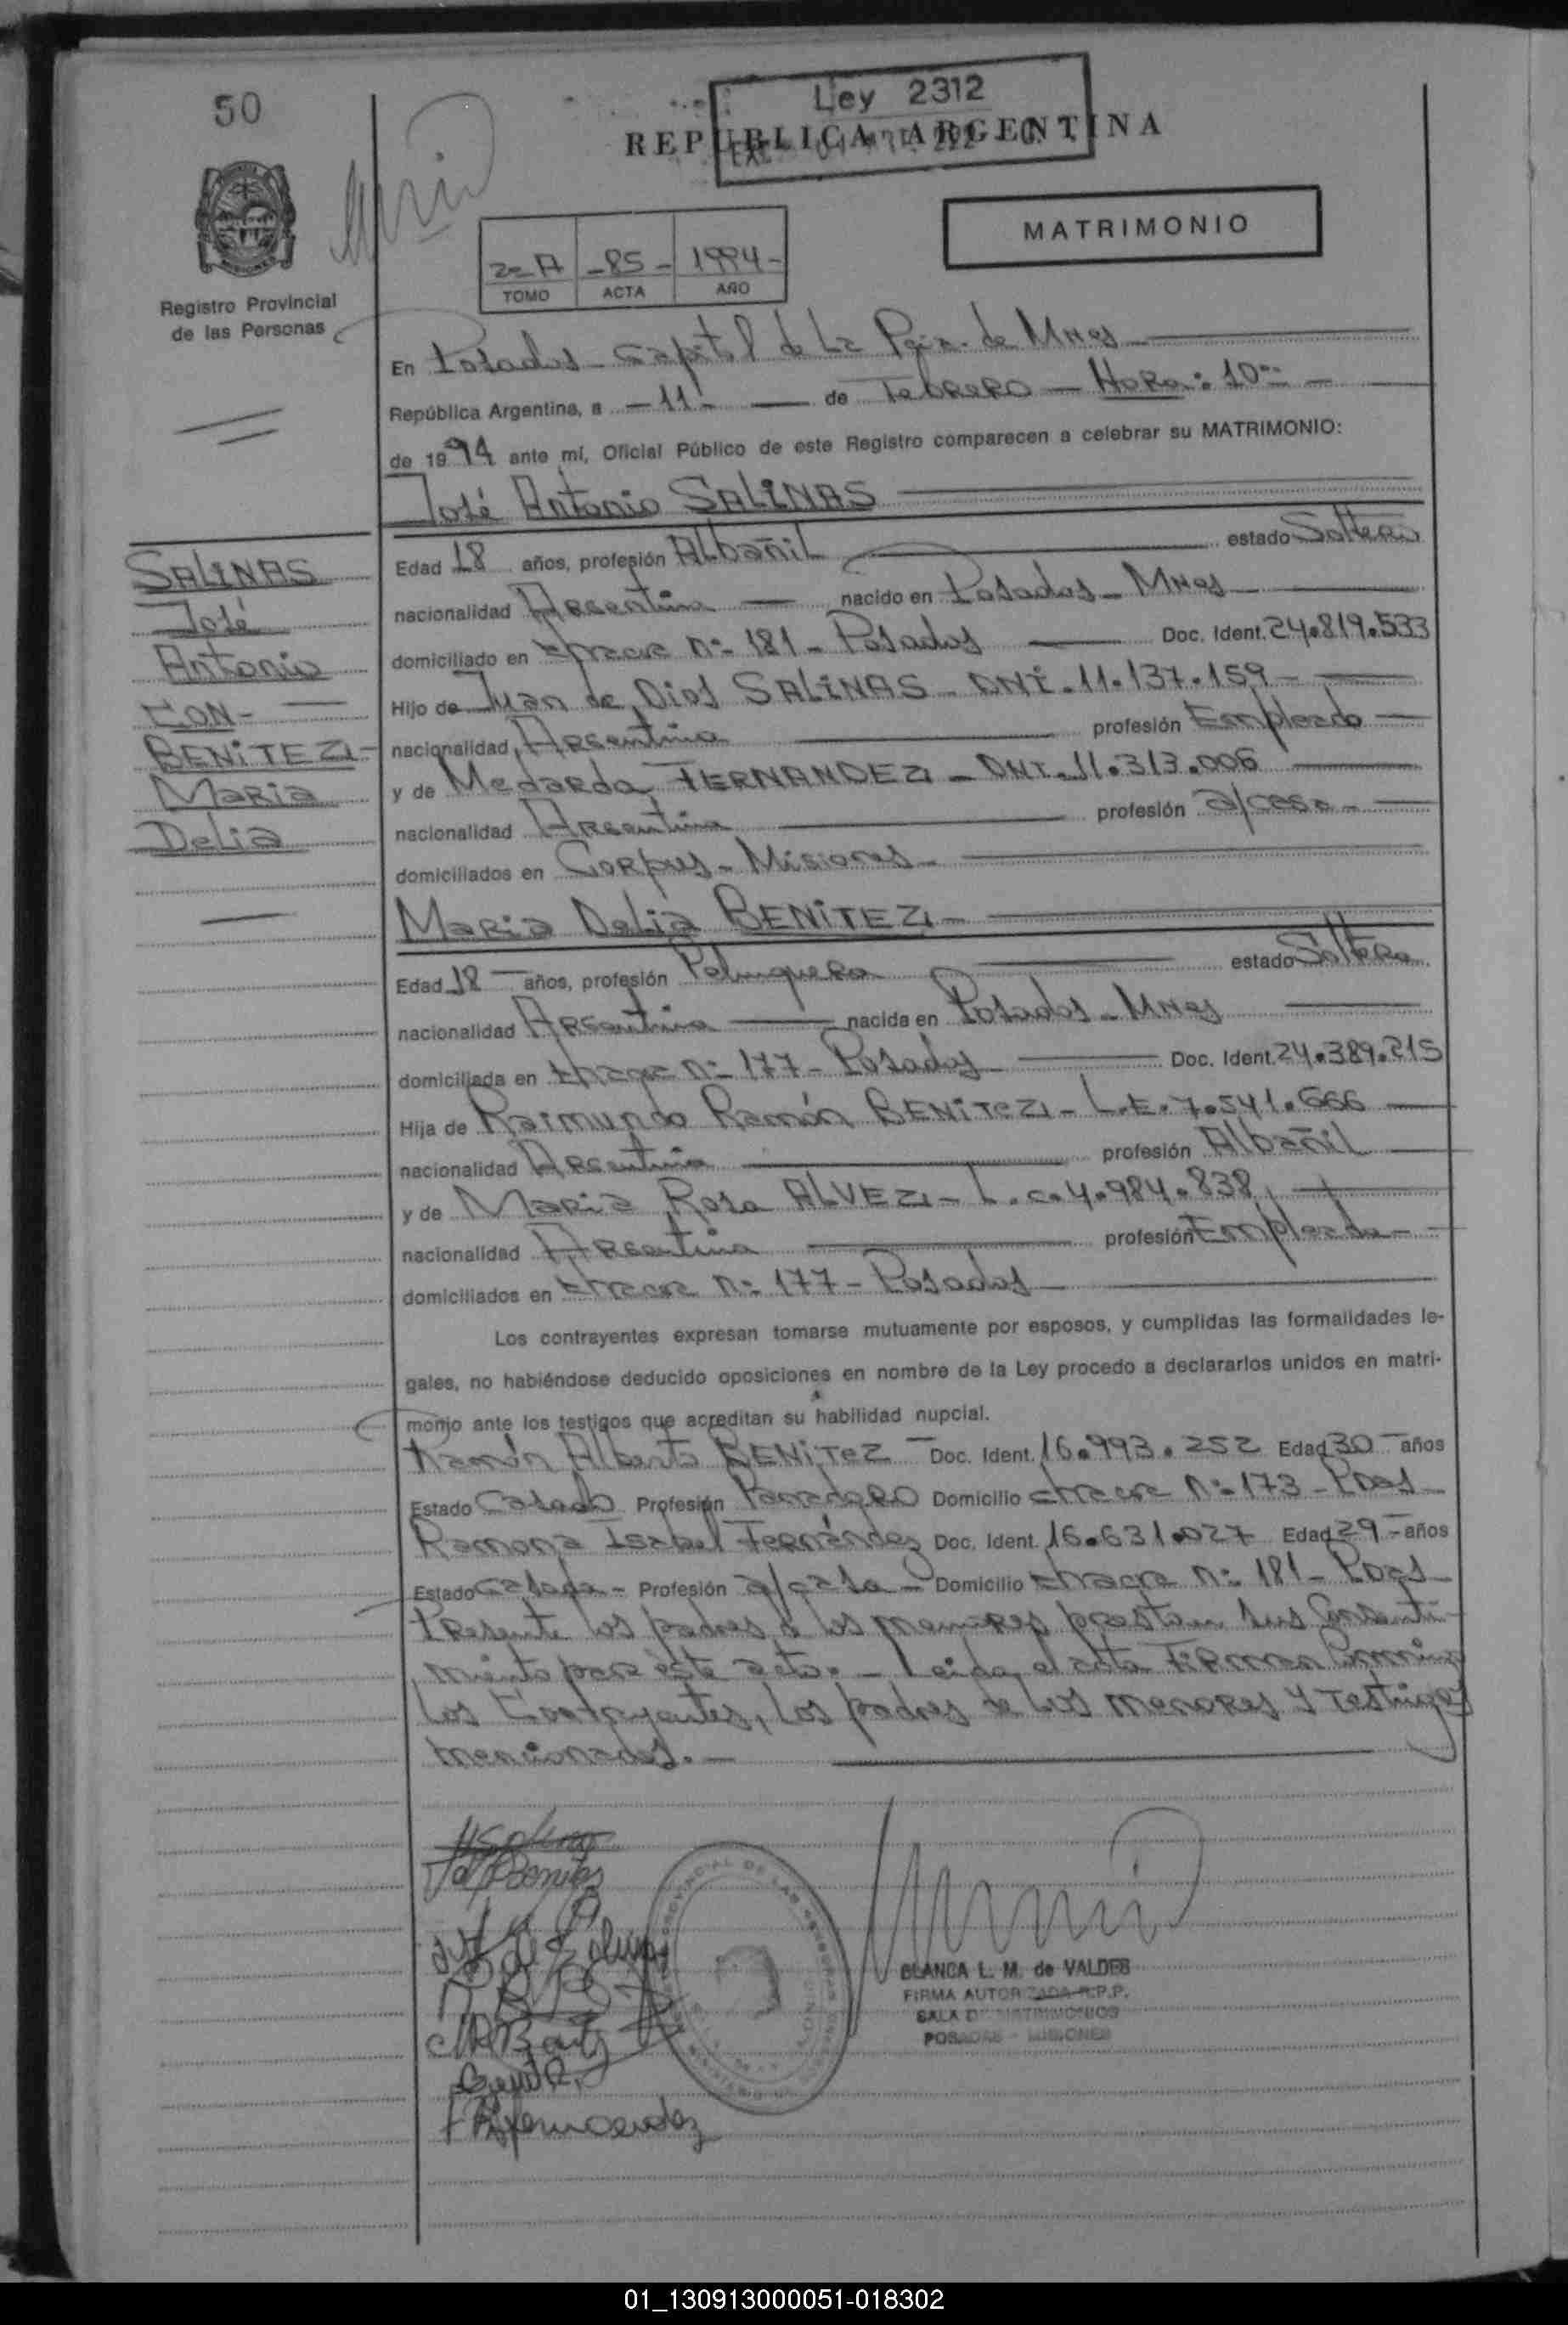 50
Ley 2312
REPUBLICA ARGENTINA
MATRIMONIO
2º A -85- 1994-
TOMO ACTA AÑO
MISIONES
Registro Provincial
de las Personas
En Posadas - Capital de La Pcia. de Mnes
República Argentina, a -11- de Febrero - Hora: 10
de 1994 ante mí, Oficial Público de este Registro comparecen a celebrar su MATRIMONIO:
José Antonio SALINAS
SALINAS
José
Antonio
CON-
BENITEZ-
Maria
Delia
Edad 18 años, profesión Albañil estado Soltero
nacionalidad Argentina nacido en Posadas - Mnes
domiciliado en Chacra Nº 181 - Posadas Doc. Ident. 24.819.533
Hijo de Juan de Dios SALINAS - DNI. 11.137.159
nacionalidad Argentina profesión Empleado
y de Medarda FERNANDEZ - DNI. 11.313.006
nacionalidad Argentina profesión a/casa
domiciliados en Corpus - Misiones
Maria Delia BENITEZ
Edad 18 años, profesión Peluquera estado Soltera
nacionalidad Argentina nacida en Posadas - Mnes
domiciliada en Chacra Nº 177 - Posadas Doc. Ident. 24.389.215
Hija de Raimundo Ramón BENITEZ - L.E. 7.541.666
nacionalidad Argentina profesión Albañil
y de Maria Rosa ALVEZ - L.C. 4.984.838
nacionalidad Argentina profesión Empleada
domiciliados en Chacra Nº 177 - Posadas
Los contrayentes expresan tomarse mutuamente por esposos, y cumplidas las formalidades le-
gales, no habiéndose deducido oposiciones en nombre de la Ley procedo a declararlos unidos en matri-
monio ante los testigos que acreditan su habilidad nupcial.
Ramón Alberto BENITEZ Doc. Ident. 16.993.252 Edad 30 años
Estado Casado Profesión Panadero Domicilio Chacra Nº 173 - Pdas
Ramona Isabel Fernández Doc. Ident. 16.631.027 Edad 29 años
Estado Casada - Profesión a/casa - Domicilio Chacra Nº 181 - Pdas
Presente los padres de los menores prestan sus Consenti-
miento para éste acto. - Leida el acta Firman Conmigo
los Contrayentes, los padres de los menores y Testigos
mencionados.-
BLANCA L. M. de VALDES
FIRMA AUTORIZADA R.P.P.
SALA DE MATRIMONIOS
POSADAS - MISIONES
01_130913000051-018302